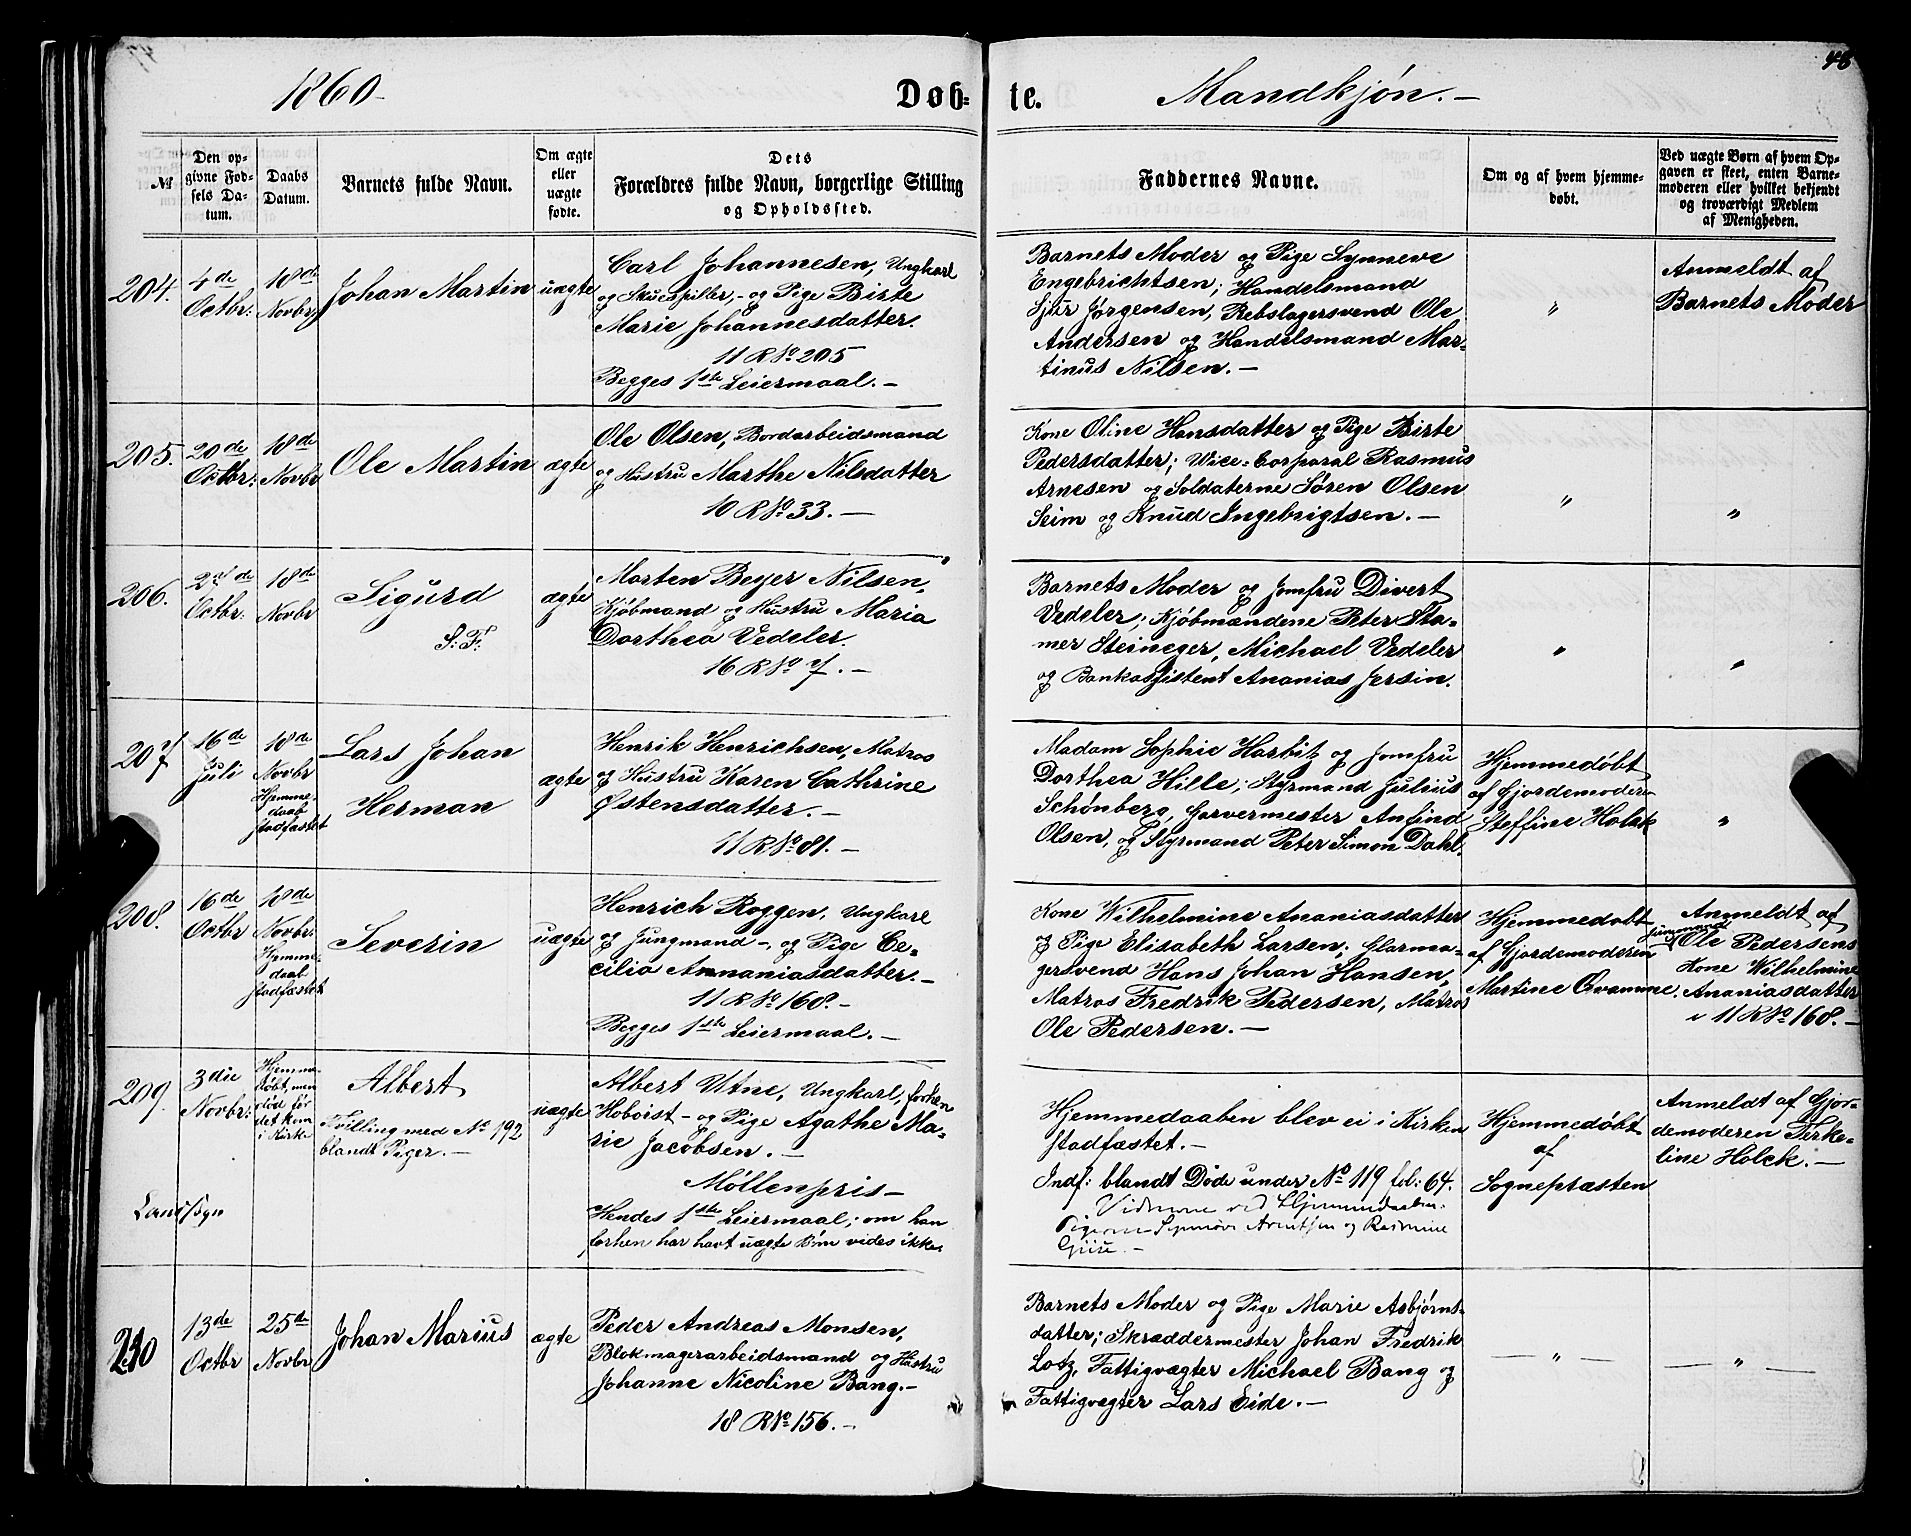 1860
Døb-
te.
Mandkjøn.
48
№
Den op-
givne Fød-
sels Da-
tum.
Daabs
Datum.
Barnets fulde Navn.
Om ægte
eller
uægte
fødte.
Dets
Forældres fulde Navn, borgerlige Stilling
og Opholdssted.
Faddernes Navne.
Om og af hvem hjemme-
døbt.
Ved uægte Børn af hvem Op-
gaven er skeet, enten Barne-
moderen eller hvilket bekjendt
og troværdigt Medlem
af Menigheden.
204.
4de
Octbr:
18de
Novbr:
Johan Martin
uægte
Carl Johannesen, Ungkarl
og Skuespiller, - og Pige Birte
Marie Johannesdatter.
11 R № 205
Begges 1ste Leiermaal. -
Barnets Moder og Pige Synneve
Engebrichtsen; Handelsmand
Sjur Jørgensen, Rebslagersvend Ole
Andersen og Handelsmand Mar-
tinus Nilsen. -
"
Anmeldt af
Barnets Moder
205.
20de
Octbr:
18de
Novbr
Ole Martin
ægte
Ole Olsen, Bordarbeidsmand
og Hustru Marthe Nilsdatter
10 R № 33. -
Kone Oline Hansdatter og Pige Birte
Pedersdatter; Wice-Corporal Rasmus
Arnesen og Soldaterne Søren Olsen
Seim og Knud Ingebrigtsen. -
"
"
206.
27de
Octbr:
18de
Novbr
Sigurd
S: F:
ægte
Morten Beyer Nilsen,
Kjøbmand og Hustru Maria
Dorthea Vedeler.
16 R № 7. -
Barnets Moder og Jomfru Divert
Vedeler; Kjøbmændene Peter Sta-
mer Steineger, Michael Vedeler
og Bankassistent Ananias Jersin.
"
"
207
16de
Juli
18de
Novbr
Hjemme-
daab
stadfæstet
Lars Johan
Herman
ægte
Henrik Henrichsen, Matros
og Hustru Karen Cathrine
Østensdatter. -
11 R № 81. -
Madam Sophie Harbitz og Jomfru
Dorthea Hille; Styrmand Julius
Schönberg, Garvermester Anfind
Olsen, og Styrmand Peter Simon Dahl.
Hjemmedøbt
af Gjordemoderen
Steffine Holck
"
208.
16de
Octbr
18de
Novbr:
Hjemme-
daab
stadfæstet
Severin
uægte
Henrich Roggen, Ungkarl
og Jungmand -, og Pige Ce-
cilia Annaniasdatter. -
11 R № 168. -
Begges 1ste Leiermaal. -
Kone Wilhelmine Ananiasdatter
og Pige Elisabeth Larsen; Glarma-
gersvend Hans Johan Hansen,
Matros Fredrik Pedersen, Matros
Ole Pedersen. -
Hjemmedøbt
af Gjordemoderen
Martine Qvamme.
Anmeldt af
Ole Pedersens
Kone Wilhelmine
Ananiasdatter
i 11 R № 168. -
209.
3die
Novbr:
Hjemme-
døbt, men
død før
det kom
i Kirke
Albert
Tvilling med № 192
blandt Piger. -
uægte
Albert Utne, Ungkarl, forhen
Hoboist - og Pige Agathe Ma-
rie Jacobsen. -
Møllenpris -
Landsogn
Hendes 1ste Leiermaal; om han
forhen har havt uægte Børn vides ikke.
Hjemmedaaben blev ei i Kirken
stadfæstet. -
Indf: blandt Døde under № 119 fol: 64.
Vidnerne ved Hjemmedaaben:
Pigerne Synnøve Arentsen og Rasmine
Hjemmedøbt
af
Sognepræsten
Anmeldt af Gjor-
demoderen Terke-
line Holck. -
210
13de
Octbr
25de
Novbr
Johan Marius
ægte
Peder Andreas Monsen,
Blokmagerarbeidsmand og Hustru
Johanne Nicoline Bang. -
18 R № 156. -
Barnets Moder og Pige Marie Asbjørns-
datter; Skræddermester Johan Fredrik
Lotz, Fattigvægter Michael Bang og
Fattigvægter Lars Eide. -
- " -
- " -